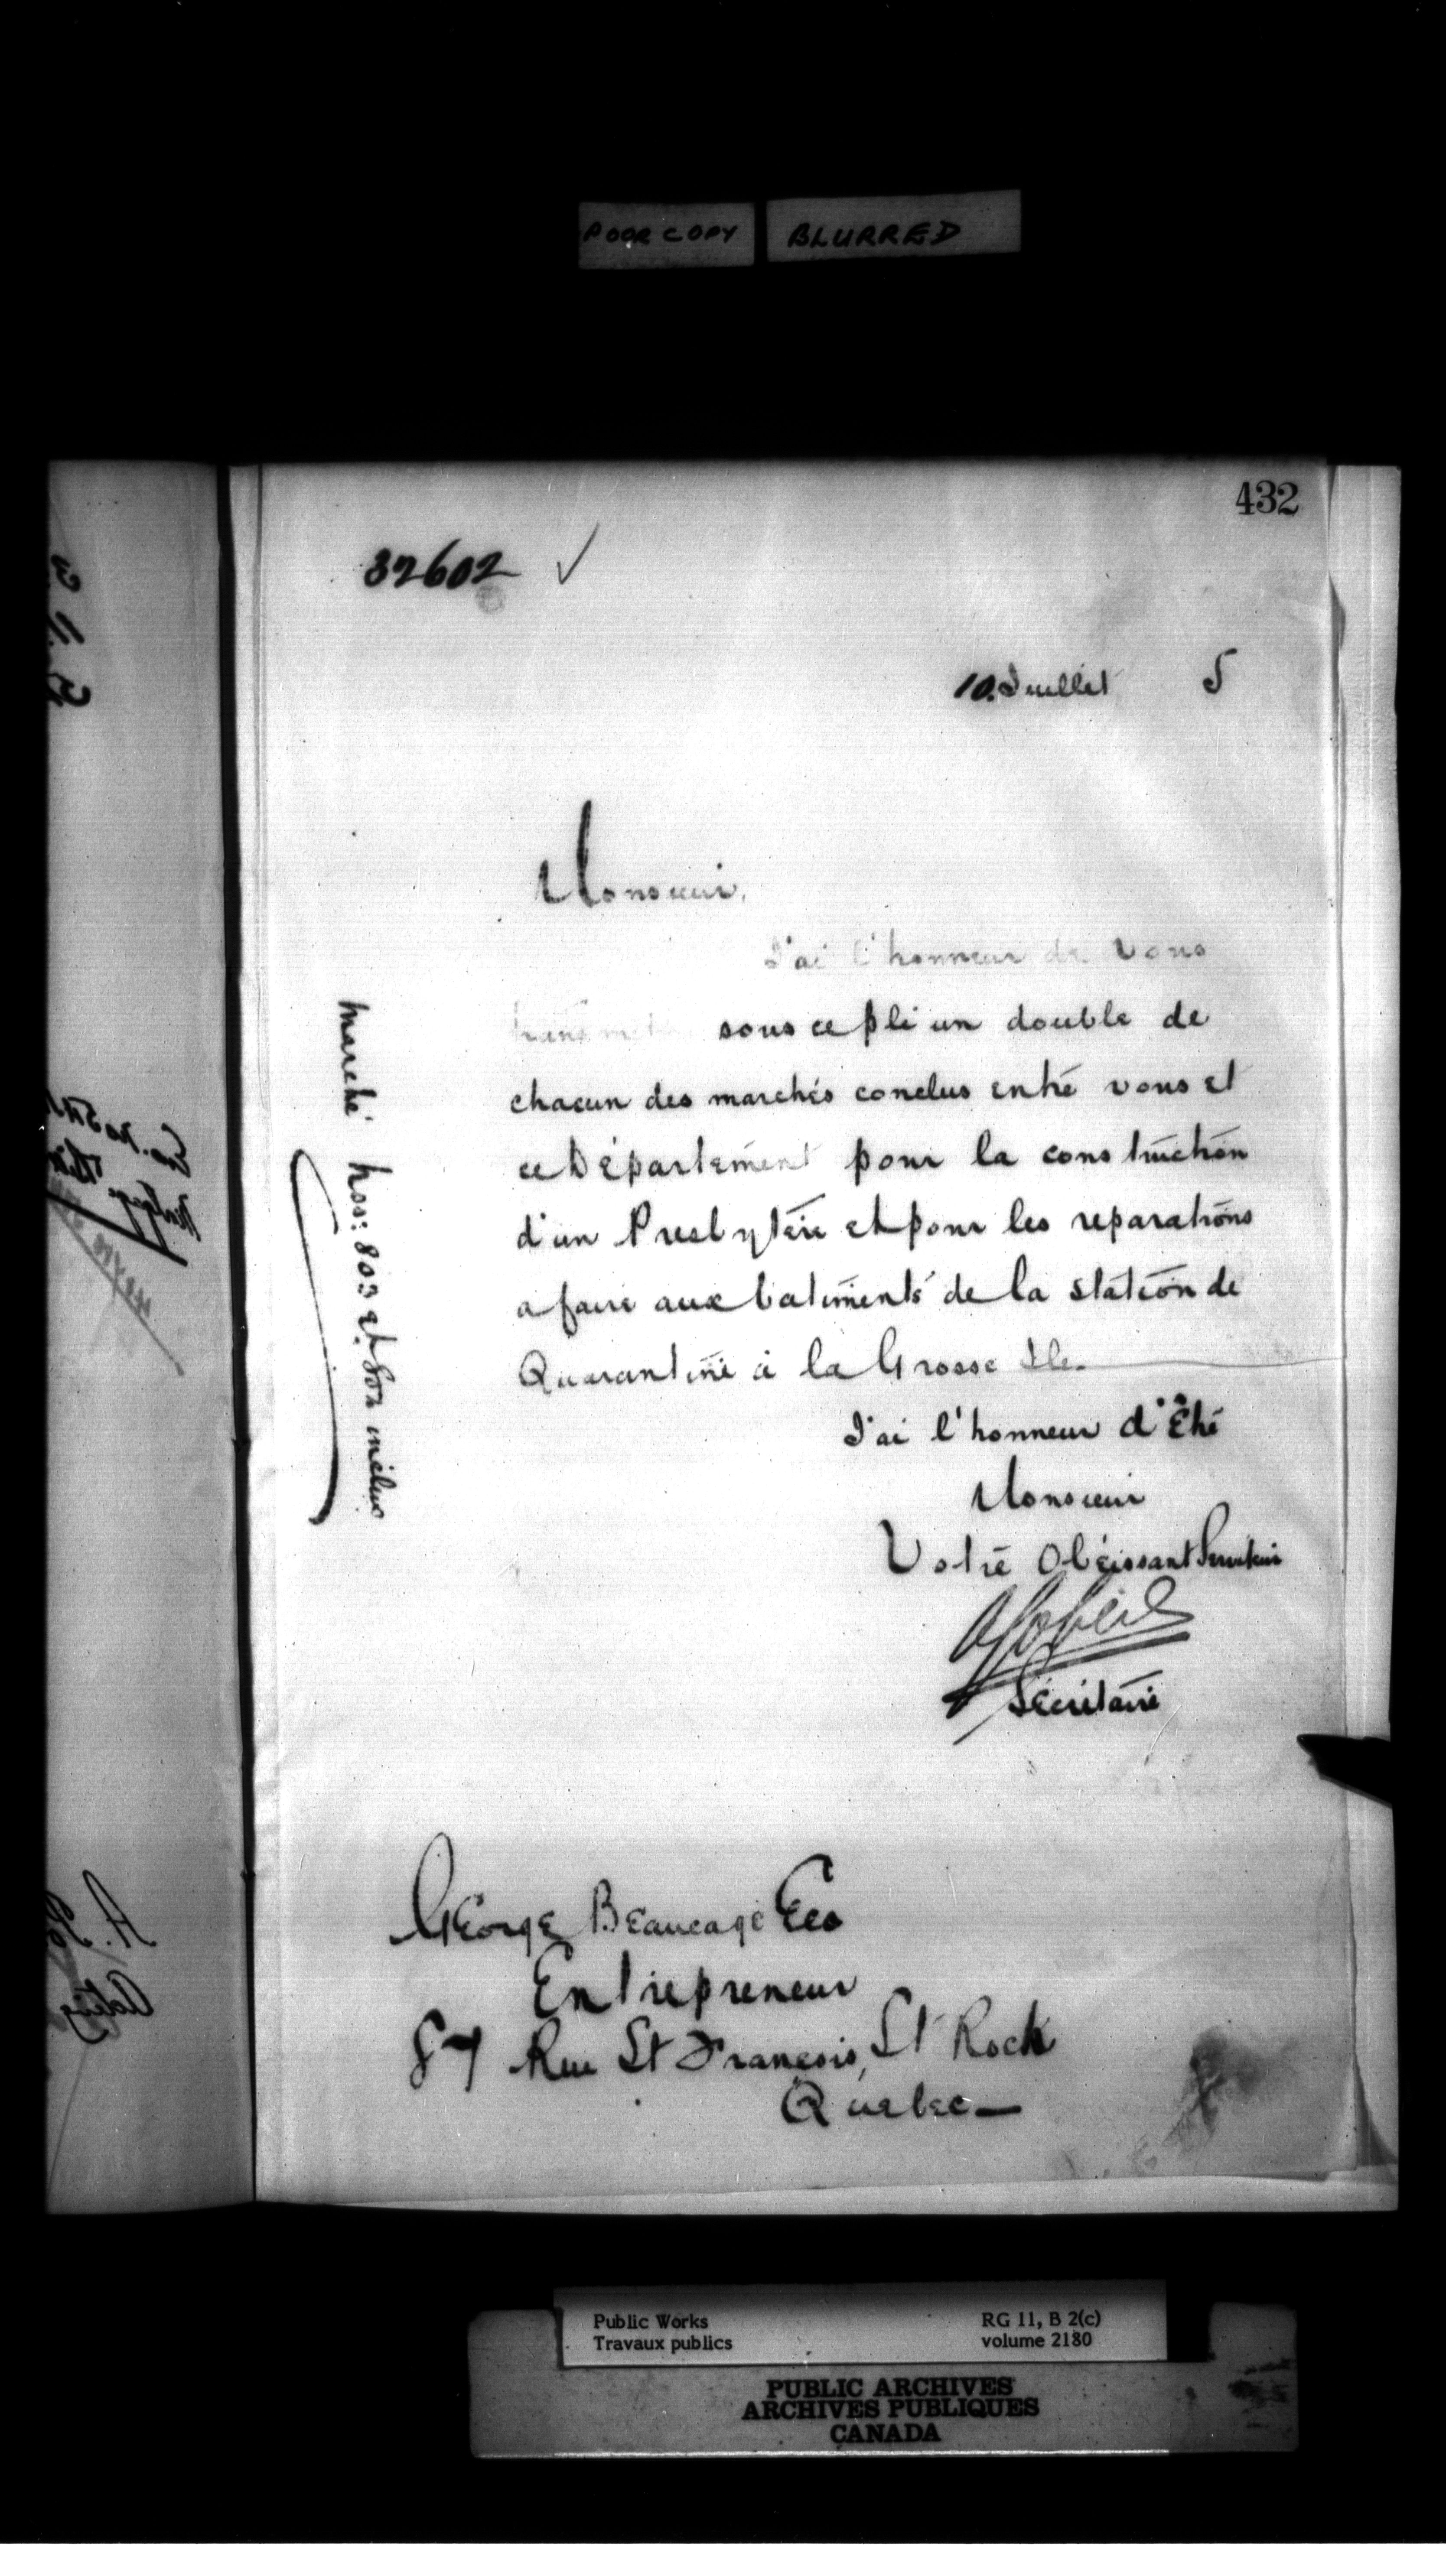 POOR COPY BLURRED
432
32602 ✓
10. Juillet 5
Monsieur,
J'ai l'honneur de vous
transmettre sous ce pli un double de
chacun des marchés conclus entre vous et
ce Département pour la construction
d'un Presbytère et pour les reparations
a faire aux batiments de la station de
Quarantine à la Grosse Ile.
J'ai l'honneur d'Être
Monsieur
Votre Obéissant Serviteur
AGobeil
Sécrétaire
marché Nos: 803 et 802 inclus
George Beaucage Ecr
Entrepreneur
87 Rue St François, St Roch
Quebec
Public Works RG 11, B 2(c)
Travaux publics volume 2180
PUBLIC ARCHIVES
ARCHIVES PUBLIQUES
CANADA